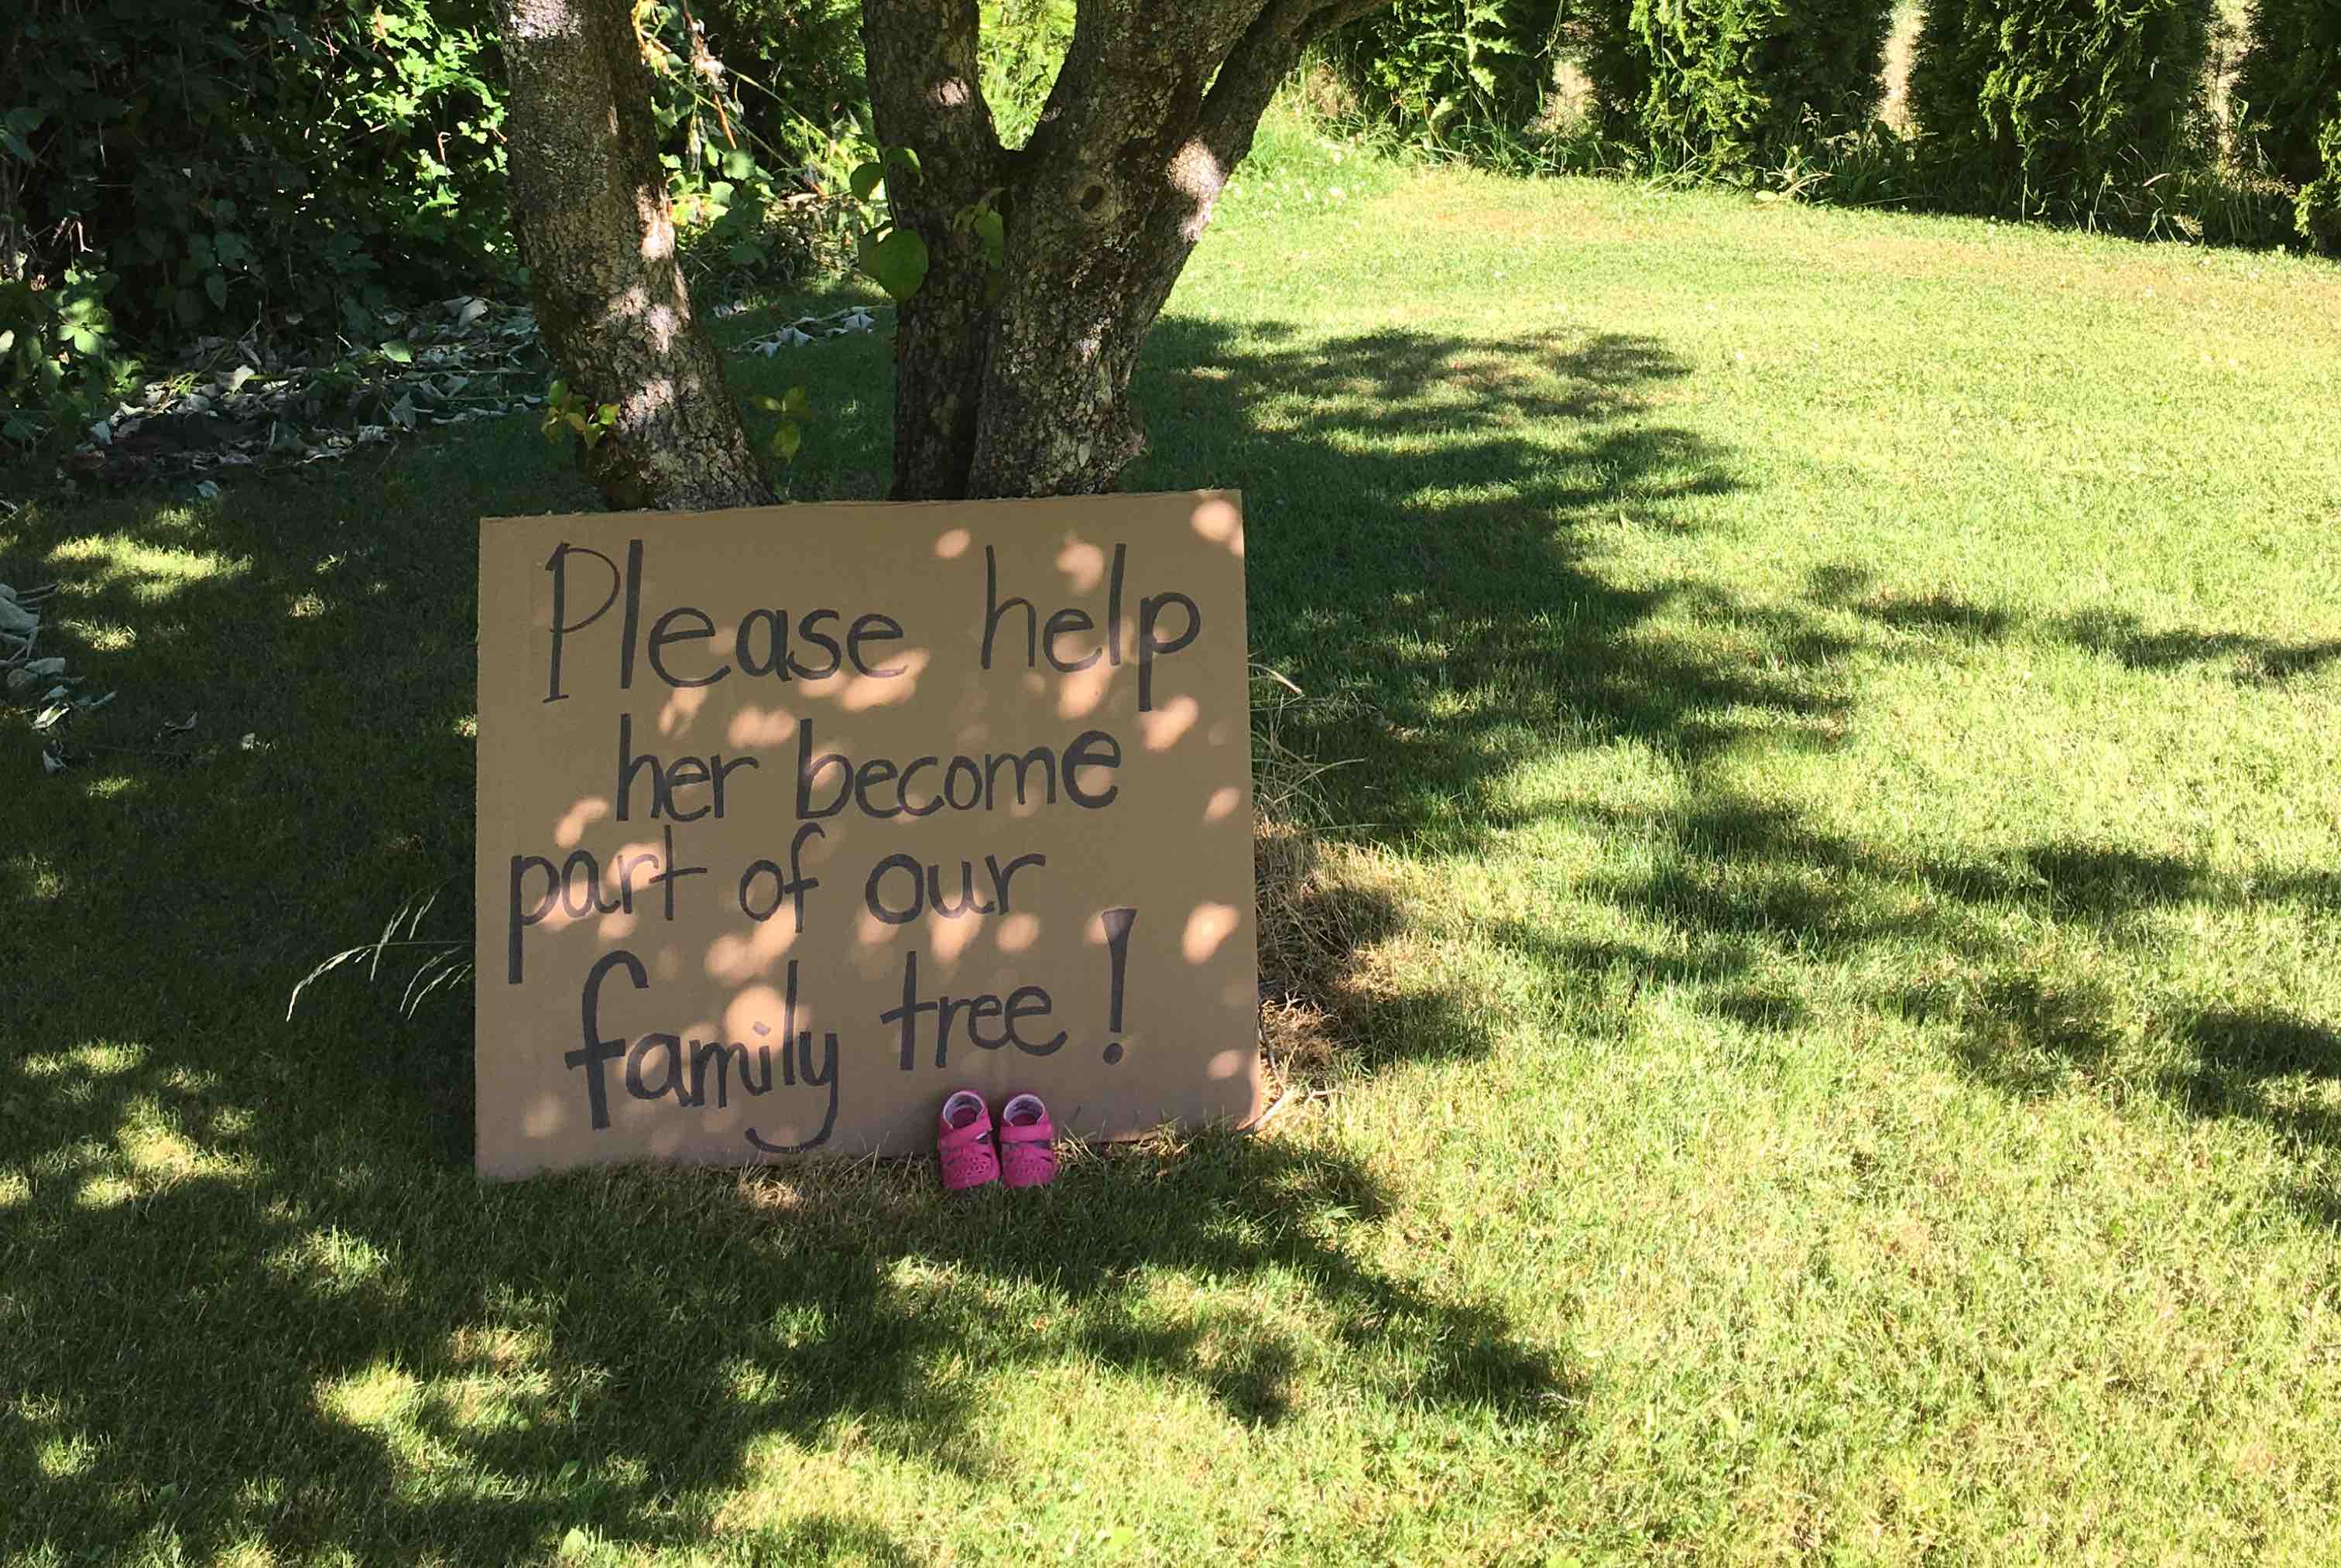 Please help
her become
part of our
family tree!